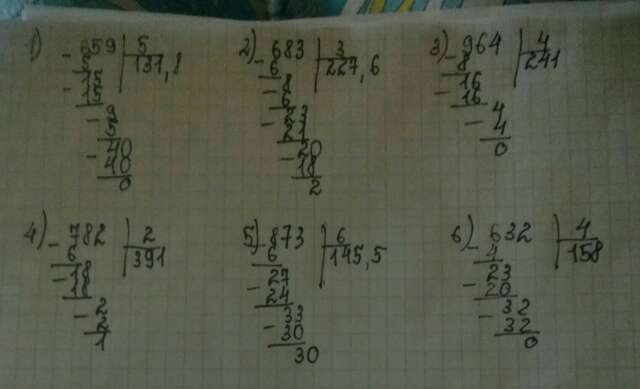 1) 659 | 5
- 5 | 131,8
15
- 15
9
- 5
40
- 40
0
2) 683 | 3
- 6 | 227,6
8
- 6
23
- 21
20
- 18
2
3) 964 | 4
- 8 | 241
16
- 16
4
- 4
0
4) 782 | 2
- 6 | 391
18
- 18
2
- 2
1
5) 873 | 6
- 6 | 145,5
27
- 24
33
- 30
30
6) 632 | 4
- 4 | 158
23
- 20
32
- 32
0